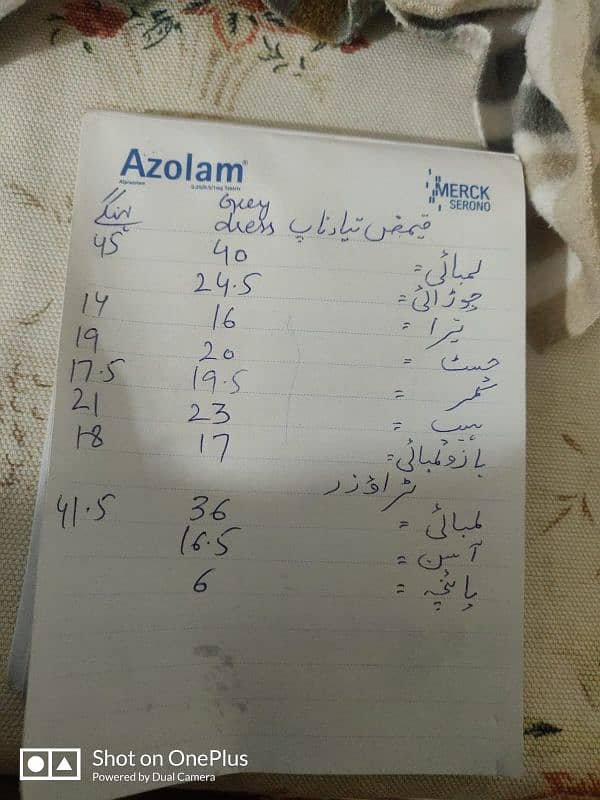 Azolam®
Alprazolam
0.25/0.5/1mg Tablets
MERCK
SERONO
Grey
قیمض تیار ناپ dress
لمبائی = 40 45
چوڑائی = 24.5
تیرا = 16 14
چسٹ = 20 19
کمر = 19.5 17.5
ہیپ = 23 21
بازو لمبائی = 17 18
ٹراؤزر
لمبائی = 36 41.5
آسن = 16.5
پائنچہ = 6
Shot on OnePlus
Powered by Dual Camera